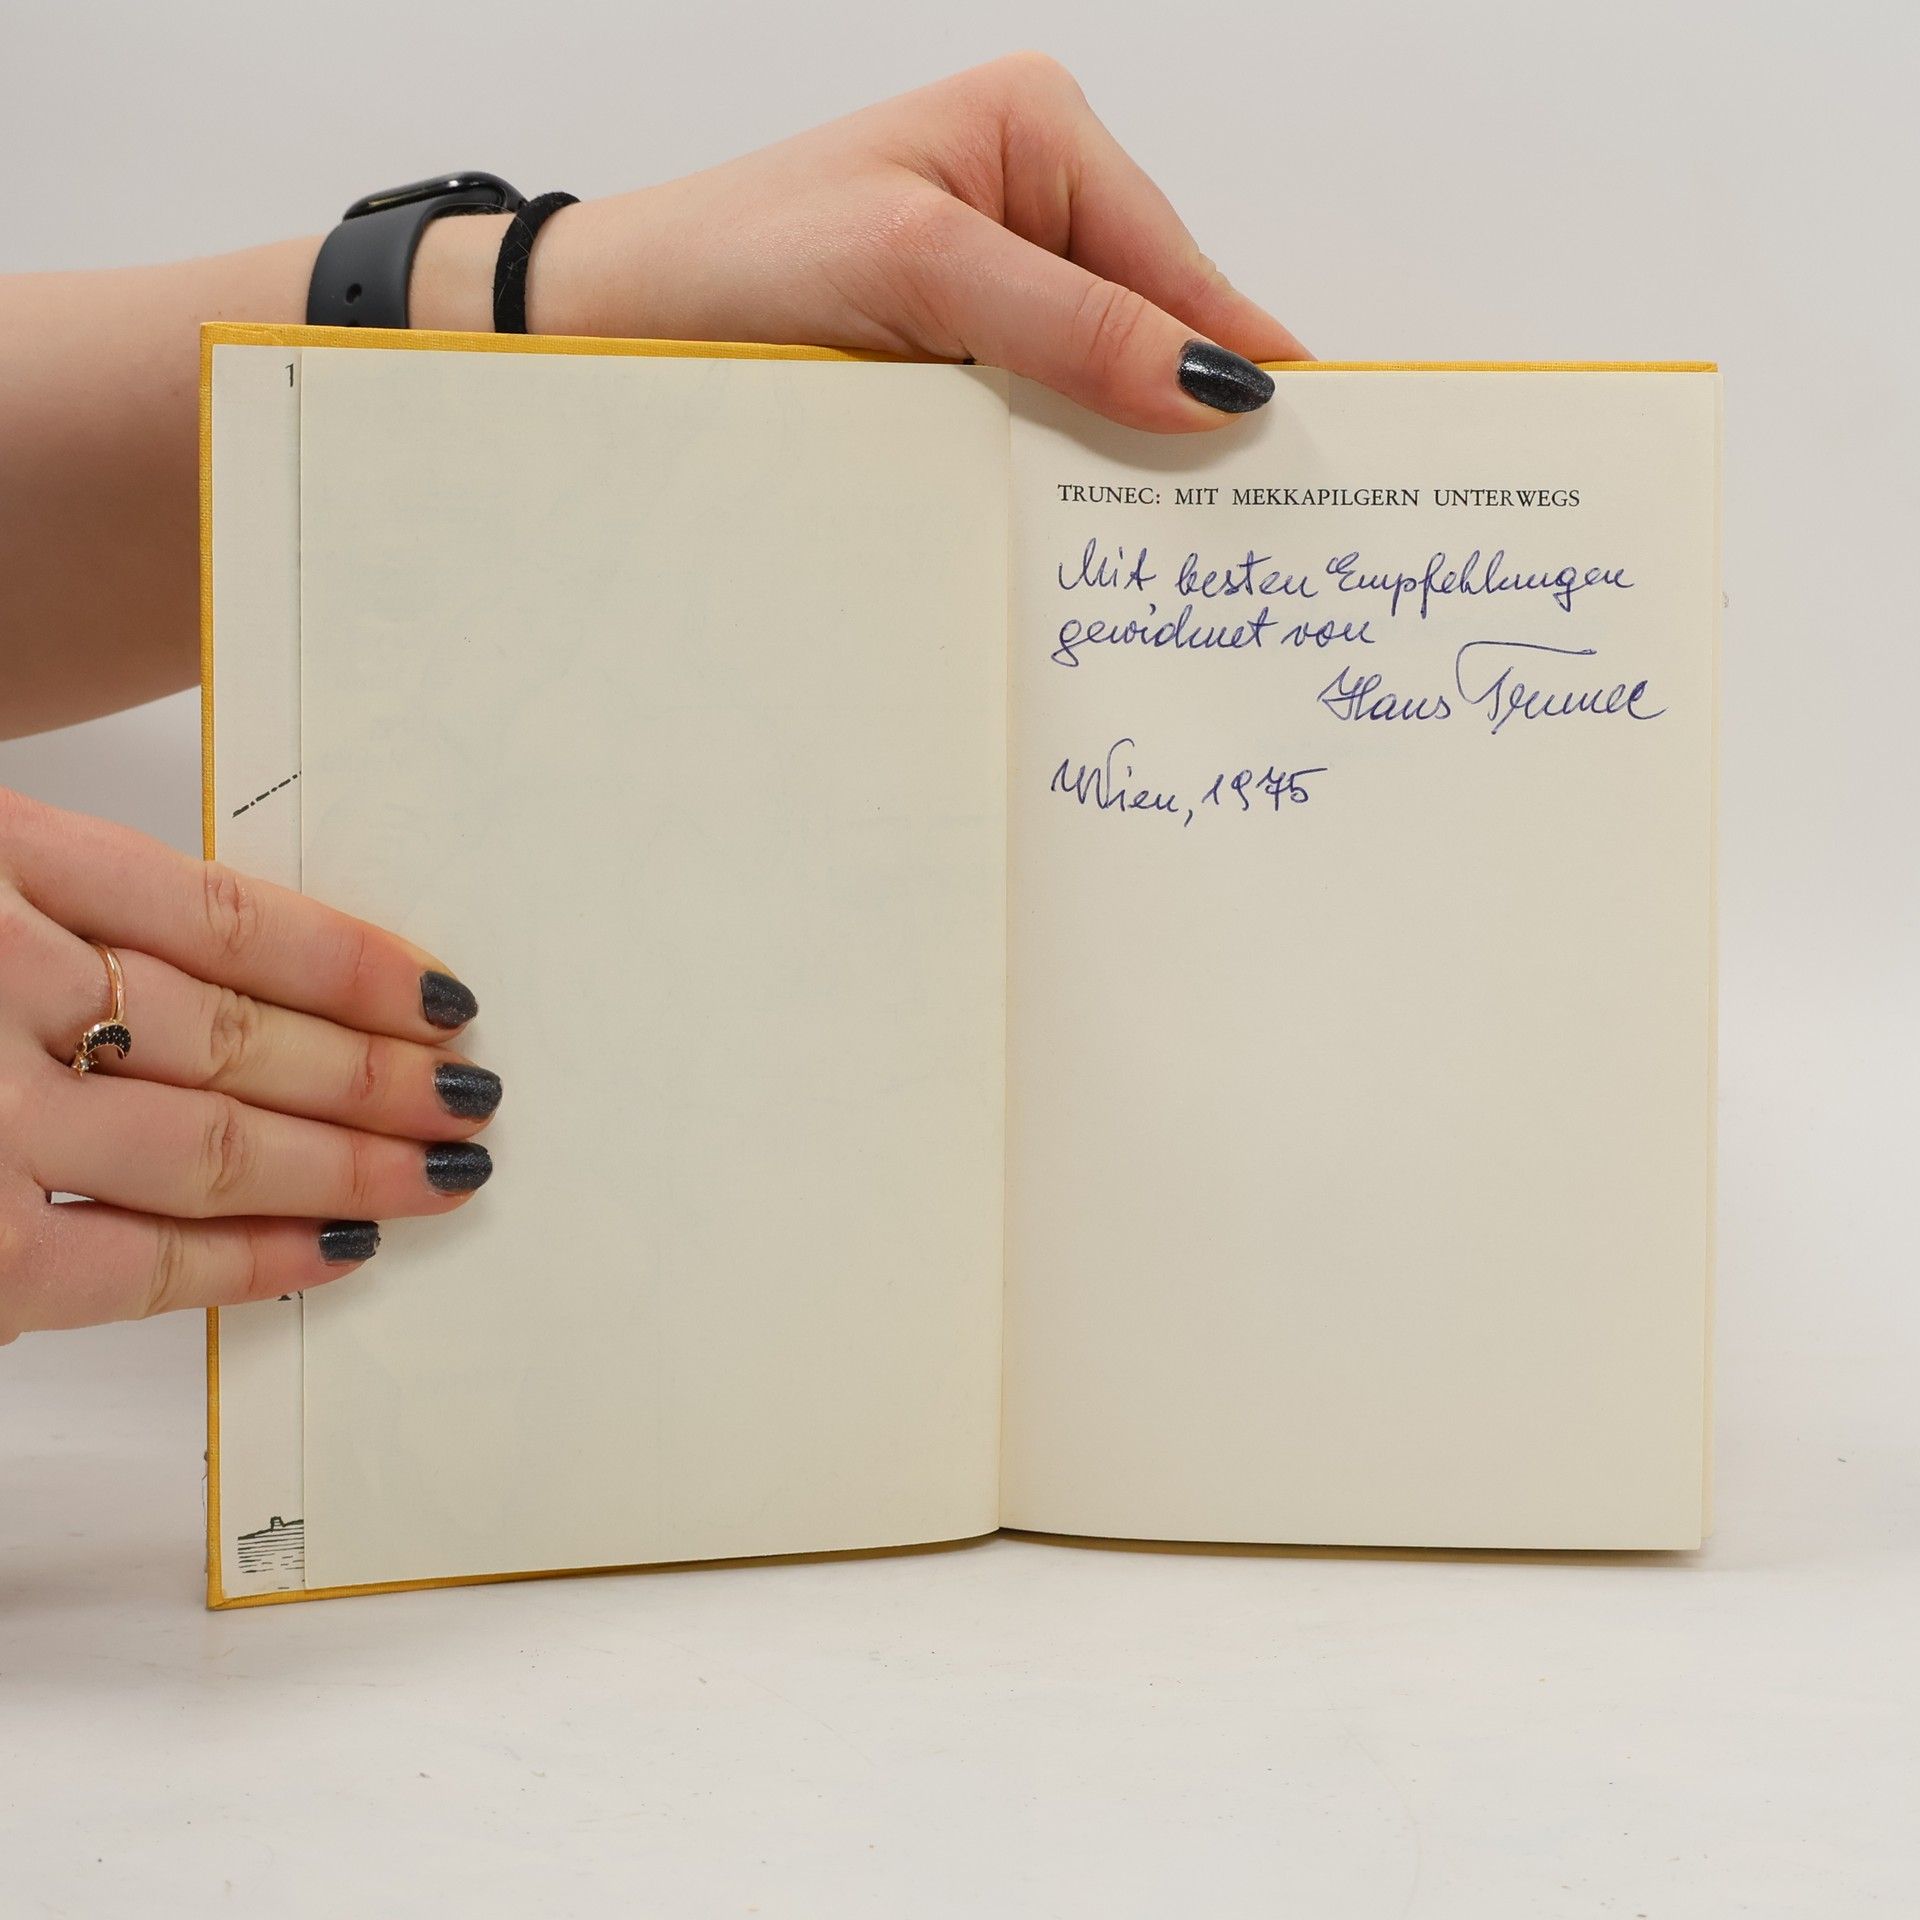 1
TRUNEC: MIT MEKKAPILGERN UNTERWEGS
Mit besten Empfehlungen
gewidmet von
Hans Trunec
Wien, 1975